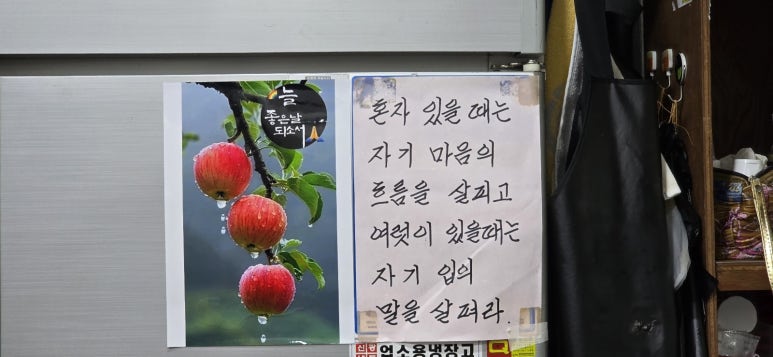 늘
좋은날
되소서
혼자 있을 때는
자기 마음의
흐름을 살피고
여럿이 있을때는
자기 입의
말을 살펴라.
업소용냉장고